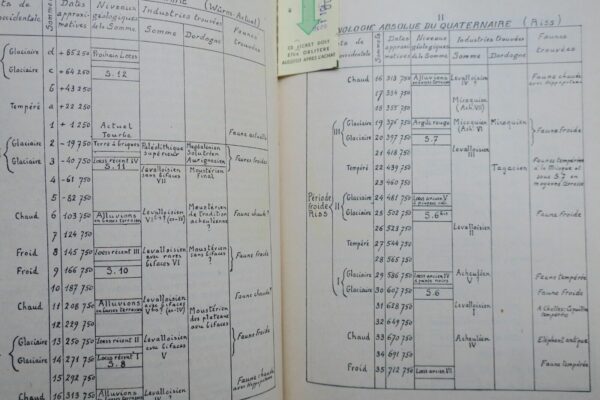 (Würm-Actuel)
Dates approxi-matives
Niveaux géologiques de la Somme
Industries trouvées
Somme
Dordogne
Faunes trouvées
Glaciaire d +85 250 Prochain Loess
Glaciaire c +64 250 S.12
b +43 250
Tempéré a +22 250
1 +1 250 Actuel Tourbe Faune actuelle
Glaciaire 2 -19 750 Terre à briques Paléolithique supérieur Magdalénien Solutréen Aurignacien Faunes froides
Glaciaire 3 -40 750 Loess récent IV S.11 Levalloisien sans bifaces VII Moustérien Final
4 -61 750
5 -82 750
Chaud 6 103 750 Alluvions en basses terrasses Moustérien de tradition acheuléenne ? Faune chaude ?
7 124 750
Froid 8 145 750 Loess récent III Levalloisien avec rares bifaces VI Moustérien sans bifaces ? Faune froide
Froid 9 166 750 S.10
10 187 750
Chaud 11 208 750 Alluvions en basses terrasses Levalloisien avec bifaces Moustérien des plateaux avec bifaces Faune chaude ?
12 229 750
Glaciaire 13 250 750 Loess récent II Levalloisien avec bifaces V Faune froide
Glaciaire 14 271 750 Loess récent I S.8
15 292 750
Chaud 16 313 750 Alluvions en basses terrasses Levalloisien IV Faune chaude avec Hippopotame
CE TICKET DOIT
ETRE OBLITERE
AUSSITOT APRES L'ACHAT
II
NOLOGIE ABSOLUE DU QUATERNAIRE (Riss)
Dates approxi-matives
Niveaux géologiques de la Somme
Industries trouvées
Somme
Dordogne
Faunes trouvées
Chaud 16 313 750 Alluvions Levalloisien IV ? Faune chaude avec Hippopotame
17 334 750
18 355 750 Micoquien (Ach. VII)
III Glaciaire 19 376 750 Argile rouge Micoquien (Ach. VI) Micoquien Faune froide
Glaciaire 20 397 750 S.7
21 418 750 Levalloisien III
Tempéré 22 439 750 Tayacien Faunes tempérées à la Micoque et sous S.7 en moyennes terrasses
23 460 750
Période froide Riss
II Glaciaire 24 481 750 Loess ancien V
Glaciaire 25 502 750 S.6 bis Faune froide
26 523 750 Levalloisien II
Tempéré 27 544 750
28 565 750
I Glaciaire 29 586 750 Loess ancien IV Acheuléen V ? Faune tempérée
Glaciaire 30 607 750 S.6 Faune froide
31 628 750 Levalloisien I
32 649 750
Chaud 33 670 750 Acheuléen IV Elephas antiquus
34 691 750
Froid 35 712 750 Loess ancien III Faune tempérée